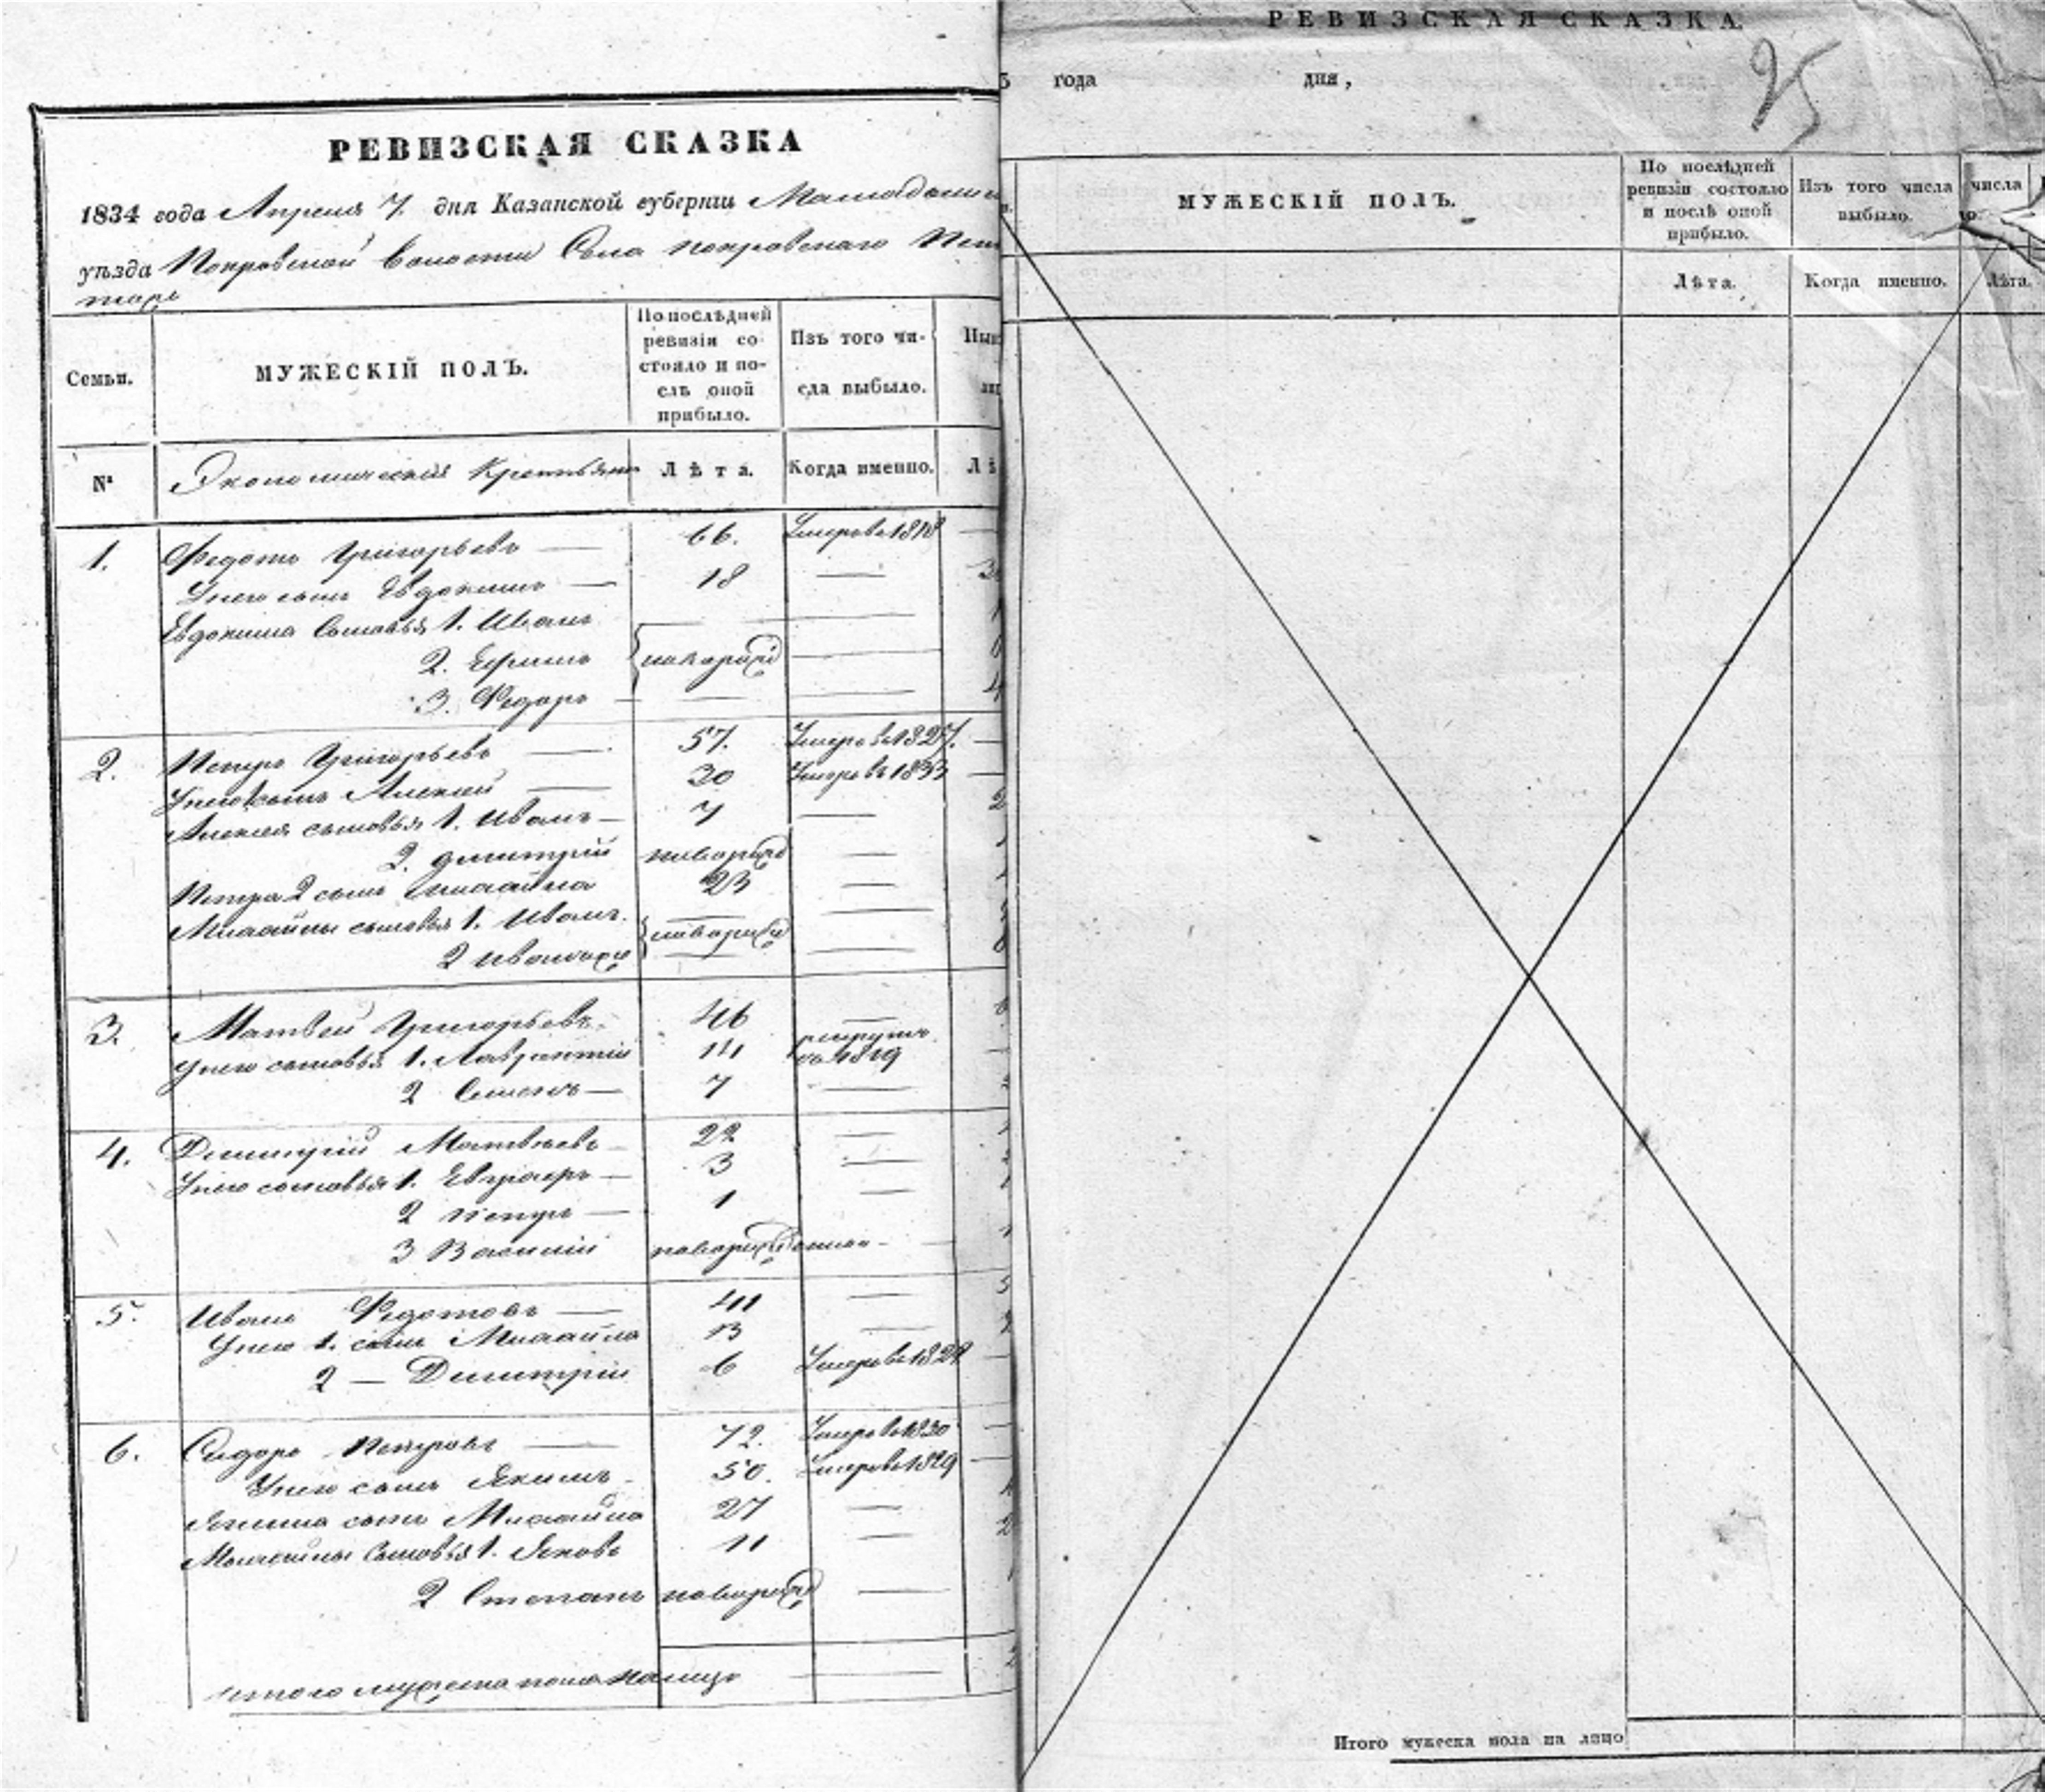 РЕВИЗСКАЯ СКАЗКА
1834 года Апреля 7. дня Казанской губернии
уѣзда Покровской волости Села Покровскаго
Семьи.
МУЖЕСКІЙ ПОЛЪ.
По послѣдней
ревизіи со-
стояло и по-
слѣ оной
прибыло.
Изъ того чи-
сла выбыло.
№
Экономическія Крестьяне
Лѣта.
Когда именно.
1. Федотъ Григорьевъ — 66. Умеръ въ 1818 —
У него сынъ Евдокимъ — 18 —
Евдокима сыновья 1. Иванъ — —
2. Ефимъ —
3. Федоръ — — —
2. Петръ Григорьевъ — 57. Умеръ въ 1827. —
У него сынъ Алексей — 30 Умеръ въ 1833 —
Алексея сыновья 1. Иванъ — 7 —
2. Дмитрій —
Петра 2 сынъ Михайла 23 —
Михайлы сыновья 1. Иванъ. — —
2 Иванъ — —
3. Матвей Григорьевъ. 46 —
У него сыновья 1. Лаврентій 14 рекрутъ въ 1819
2 Семенъ — 7 —
4. Димитрій Матвѣевъ 22 —
У него сыновья 1. Евграфъ — 3 —
2 Петръ — 1 —
3 Василій
5. Иванъ Федотовъ — 41 —
У него 1. сынъ Михайла 13 —
2 — Димитрій 6 Умеръ въ 1828 —
6. Сидоръ Петровъ — 72. Умеръ въ 1830 —
У него сынъ Якимъ 50. Умеръ въ 1829 —
Якима сынъ Михайла 27 —
Михайлы сыновья 1. Яковъ 11 —
2 Степанъ —
Итого мужеска пола налицо —
РЕВИЗСКАЯ СКАЗКА.
25
года дня,
МУЖЕСКІЙ ПОЛЪ.
По послѣдней
ревизіи состояло
и послѣ оной
прибыло.
Изъ того числа
выбыло.
числа
Лѣта.
Когда именно.
Лѣта.
Итого мужеска пола на лицо